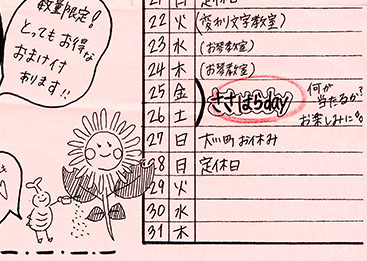 数量限定!
とってもお得な
おまけ付
あります!!
21 日 定休日
22 火 (変わり文字教室)
23 水 (お琴教室)
24 木 (お琴教室)
25 金
ささはらday
何が
当たるか?
お楽しみに
26 土
27 日 大川町 お休み
28 日 定休日
29 火
30 水
31 木